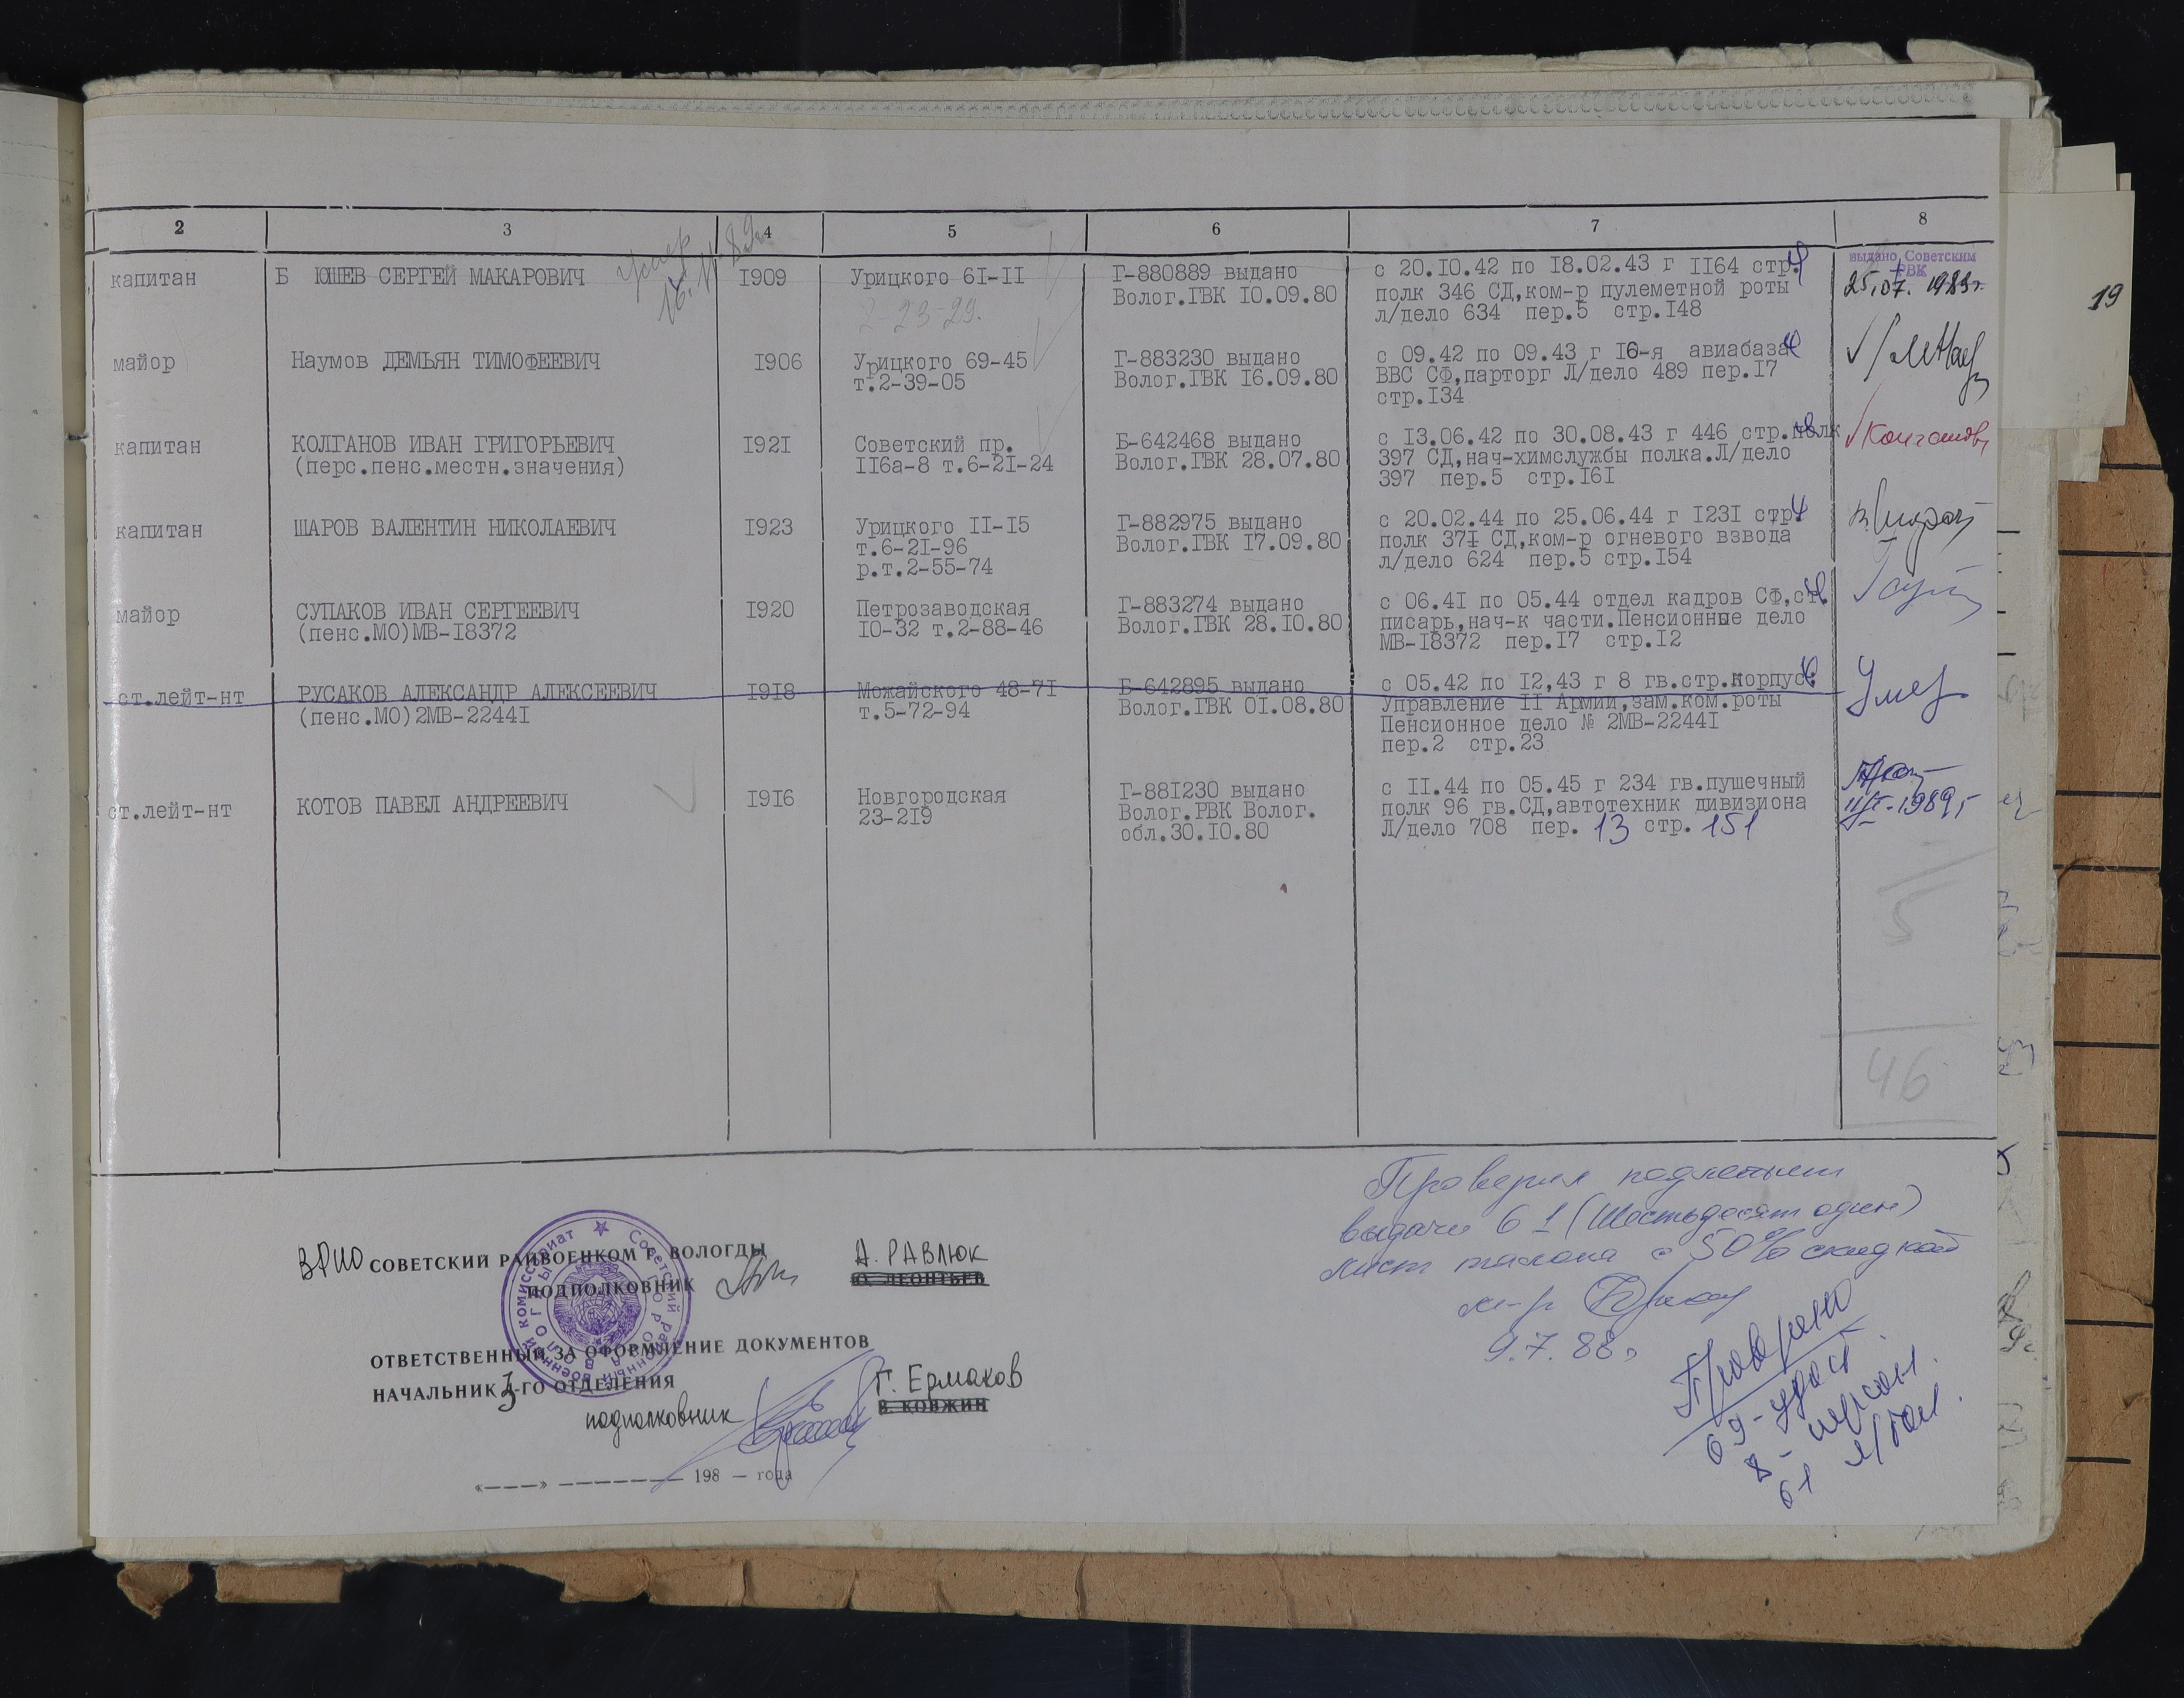 2 3 4 5 6 7 8
капитан Б ЮШЕВ СЕРГЕЙ МАКАРОВИЧ 1909 Урицкого 61-11 Г-880889 выдано с 20.10.42 по 18.02.43 г 1164 стр. выдано Советским
Волог.ГВК 10.09.80 полк 346 СД,ком-р пулеметной роты РВК
2-23-29. л/дело 634 пер.5 стр.148 25.07.1983г.
19
майор Наумов ДЕМЬЯН ТИМОФЕЕВИЧ 1906 Урицкого 69-45 Г-883230 выдано с 09.42 по 09.43 г 16-я авиабаза
т.2-39-05 Волог.ГВК 16.09.80 ВВС СФ,парторг Л/дело 489 пер.17
стр.134
капитан КОЛГАНОВ ИВАН ГРИГОРЬЕВИЧ 1921 Советский пр. Б-642468 выдано с 13.06.42 по 30.08.43 г 446 стр.полк
(перс.пенс.местн.значения) 116а-8 т.6-21-24 Волог.ГВК 28.07.80 397 СД,нач-химслужбы полка.Л/дело
397 пер.5 стр.161
капитан ШАРОВ ВАЛЕНТИН НИКОЛАЕВИЧ 1923 Урицкого 11-15 Г-882975 выдано с 20.02.44 по 25.06.44 г 1231 стр.
т.6-21-96 Волог.ГВК 17.09.80 полк 371 СД,ком-р огневого взвода
р.т.2-55-74 л/дело 624 пер.5 стр.154
майор СУПАКОВ ИВАН СЕРГЕЕВИЧ 1920 Петрозаводская Г-883274 выдано с 06.41 по 05.44 отдел кадров СФ,ст.
(пенс.МО)МВ-18372 10-32 т.2-88-46 Волог.ГВК 28.10.80 писарь,нач-к части.Пенсионные дело
МВ-18372 пер.17 стр.12
ст.лейт-нт РУСАКОВ АЛЕКСАНДР АЛЕКСЕЕВИЧ 1918 Можайского 48-71 Б-642895 выдано с 05.42 по 12,43 г 8 гв.стр.корпус Умер
(пенс.МО)2МВ-22441 т.5-72-94 Волог.ГВК 01.08.80 Управление 11 Армии,зам.ком.роты
Пенсионное дело № 2МВ-22441
пер.2 стр.23
ст.лейт-нт КОТОВ ПАВЕЛ АНДРЕЕВИЧ 1916 Новгородская Г-881230 выдано с 11.44 по 05.45 г 234 гв.пушечный
23-219 Волог.РВК Волог. полк 96 гв.СД,автотехник дивизиона
обл.30.10.80 Л/дело 708 пер. 13 стр. 151
5
46
Проверил
выдачи 61 (Шестьдесят один)
лист талона с 50% скидкой
м-р
9.7.88г
Проверено
69-удост
8- персон.
61 л/тал.
ВРИО СОВЕТСКИЙ РАЙВОЕНКОМ Г. ВОЛОГДЫ А. РАВЛЮК
ПОДПОЛКОВНИК Ю. ЛЕОНТЬЕВ
ОТВЕТСТВЕННЫЙ ЗА ОФОРМЛЕНИЕ ДОКУМЕНТОВ
НАЧАЛЬНИК 3-ГО ОТДЕЛЕНИЯ Г. Ермаков
подполковник В. КОВЖИН
«———» ———————— 198 — года